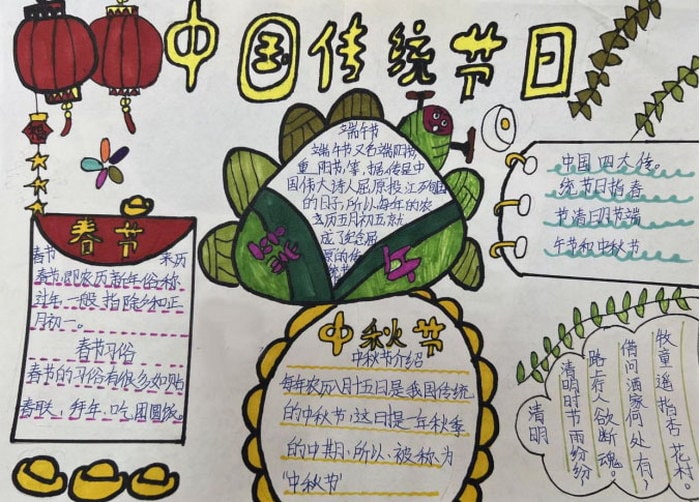 中国传统节日
春节
春节 来历
春节,即农历新年,俗称
过年,一般指除夕和正
月初一。
春节习俗
春节的习俗有很多如贴
春联,拜年,吃团圆饭。
端午节
端午节又名端阳节,
重阳节,等,据传是中
国伟大诗人屈原投江
的日子,所以每年的农
历五月初五就
成了纪念屈
原的传
统节
端午
中秋节
中秋节介绍
每年农历八月十五日是我国传统
的中秋节,这日是一年秋季
的中期,所以,被称为
“中秋节”
中国四大传。
统节日指春
节清明节端
午节和中秋节
清明
清明时节雨纷纷
路上行人欲断魂。
借问酒家何处有,
牧童遥指杏花村。